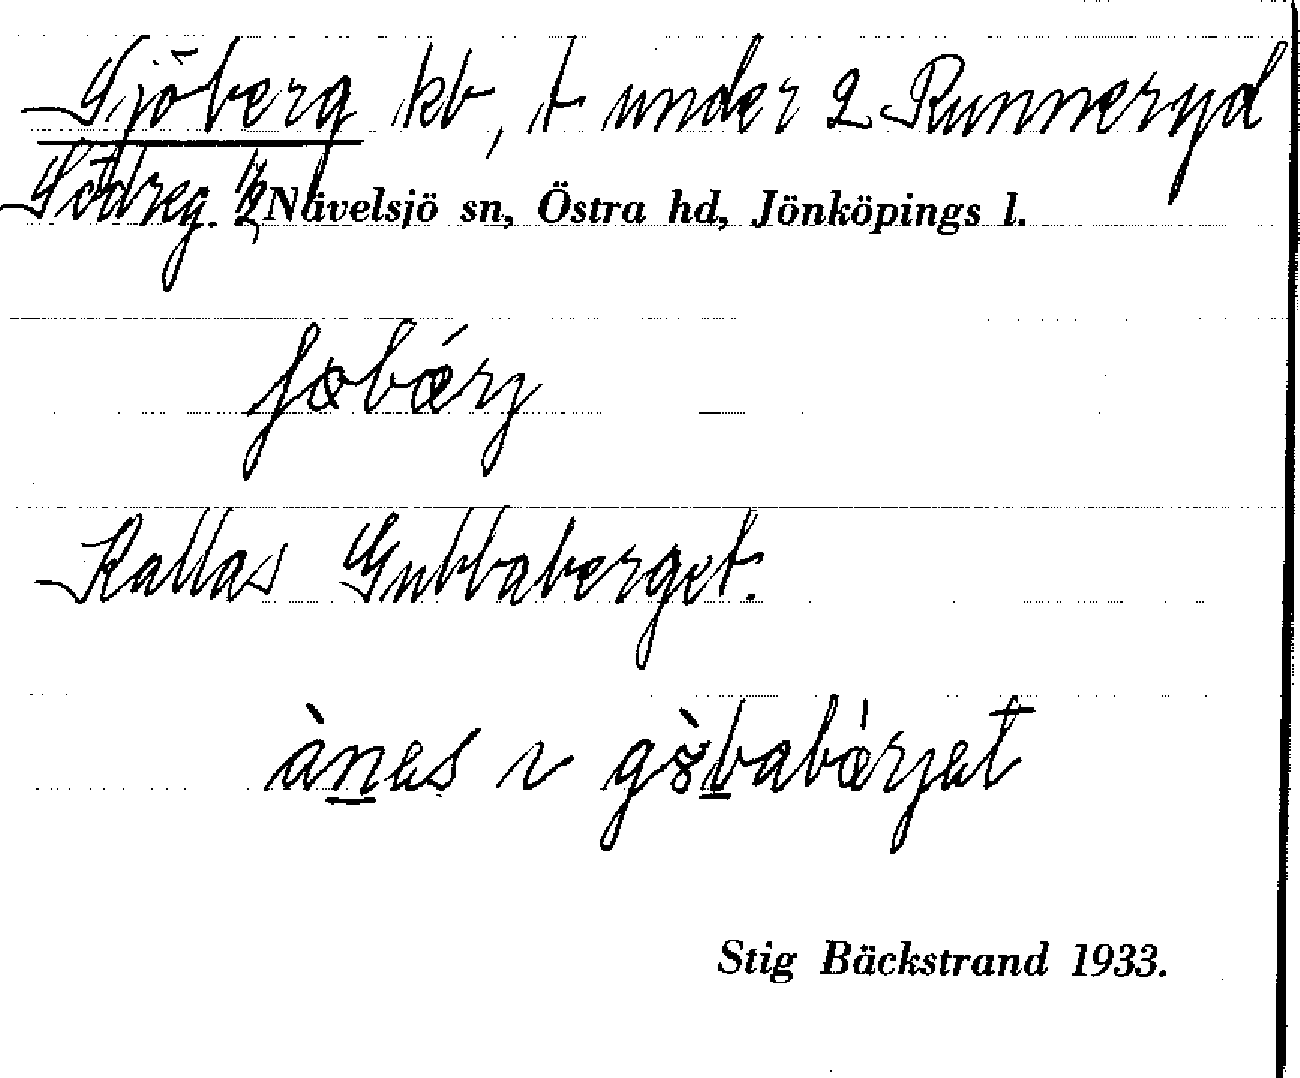 Sjöberg kb, t under 2 Runneryd
Södreg. ½ Nävelsjö sn, Östra hd, Jönköpings l.
ʃøbǽrj
Kallas Gubbaberget.
ànas ɩ gɵ̀babǽrjet
Stig Bäckstrand 1933.